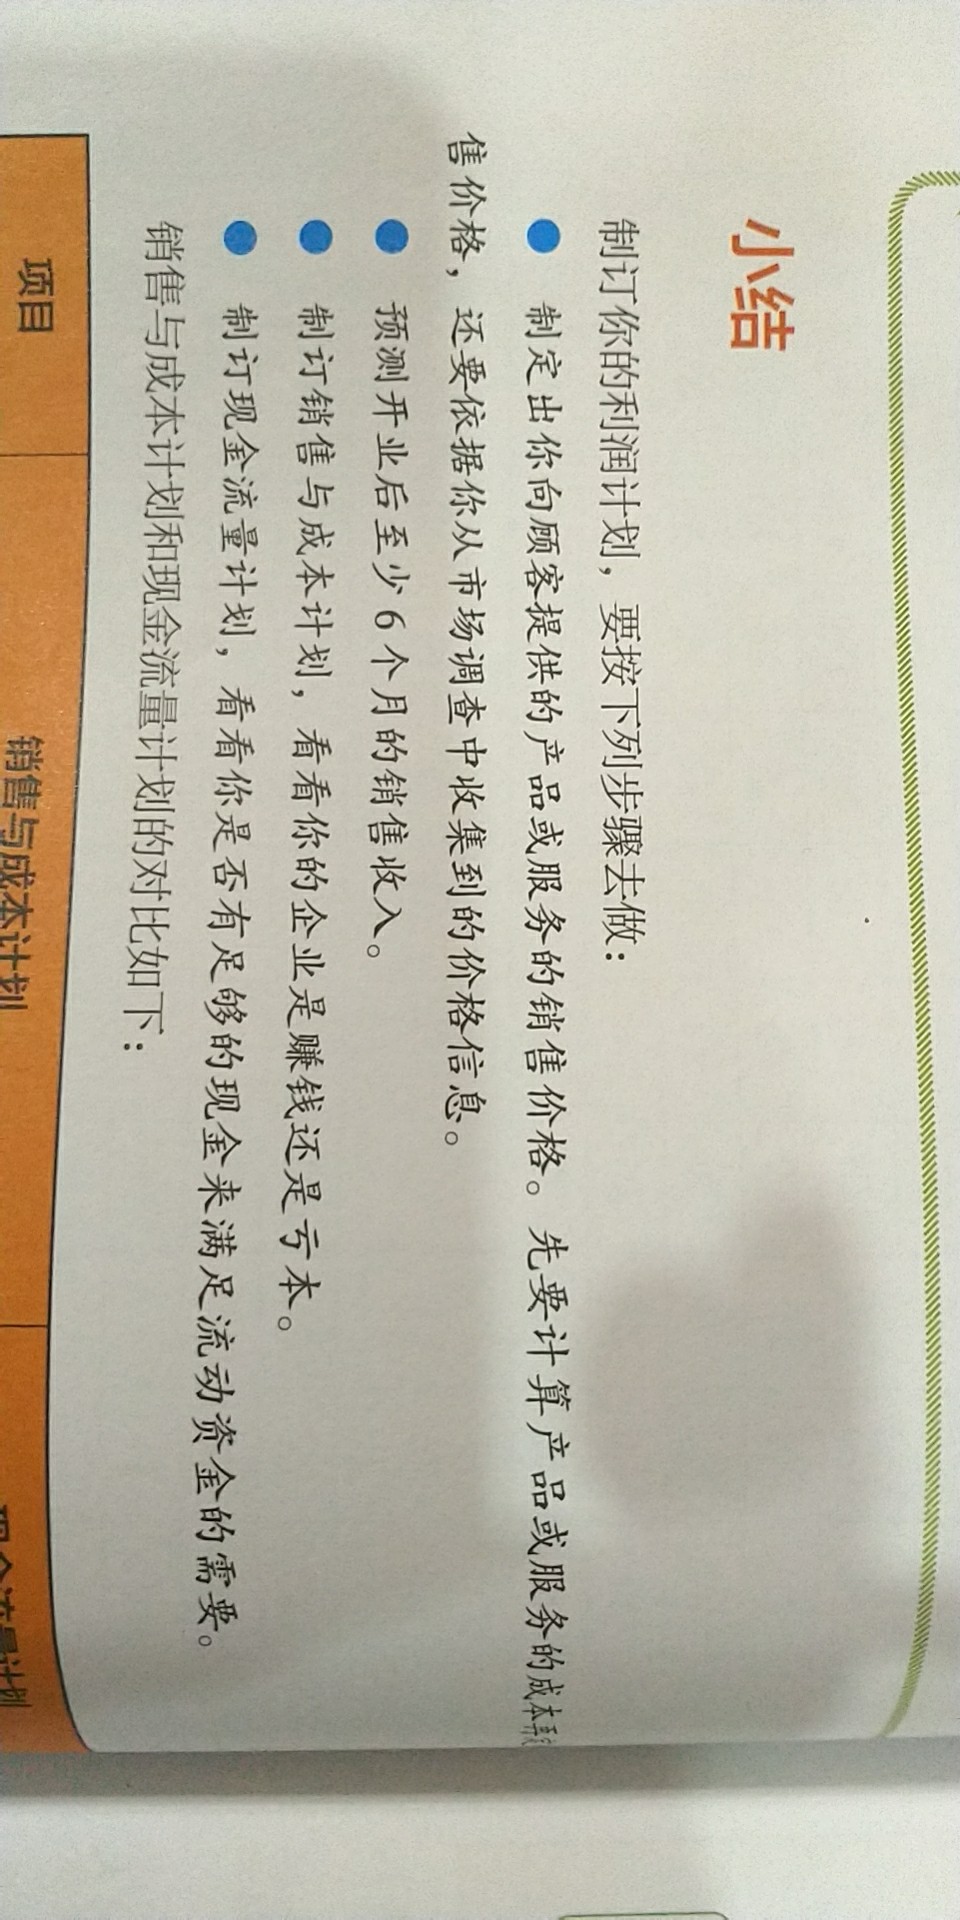 小结
制订你的利润计划，要按下列步骤去做：
● 制定出你向顾客提供的产品或服务的销售价格。先要计算产品或服务的成本
售价格，还要依据你从市场调查中收集到的价格信息。
● 预测开业后至少6个月的销售收入。
● 制订销售与成本计划，看看你的企业是赚钱还是亏本。
● 制订现金流量计划，看看你是否有足够的现金来满足流动资金的需要。
销售与成本计划和现金流量计划的对比如下：
项目 销售与成本计划 现金流量计划